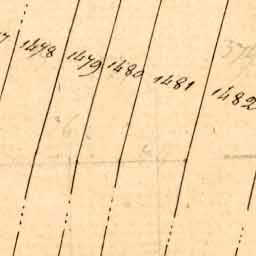 1478
1479
1480
1481
1482